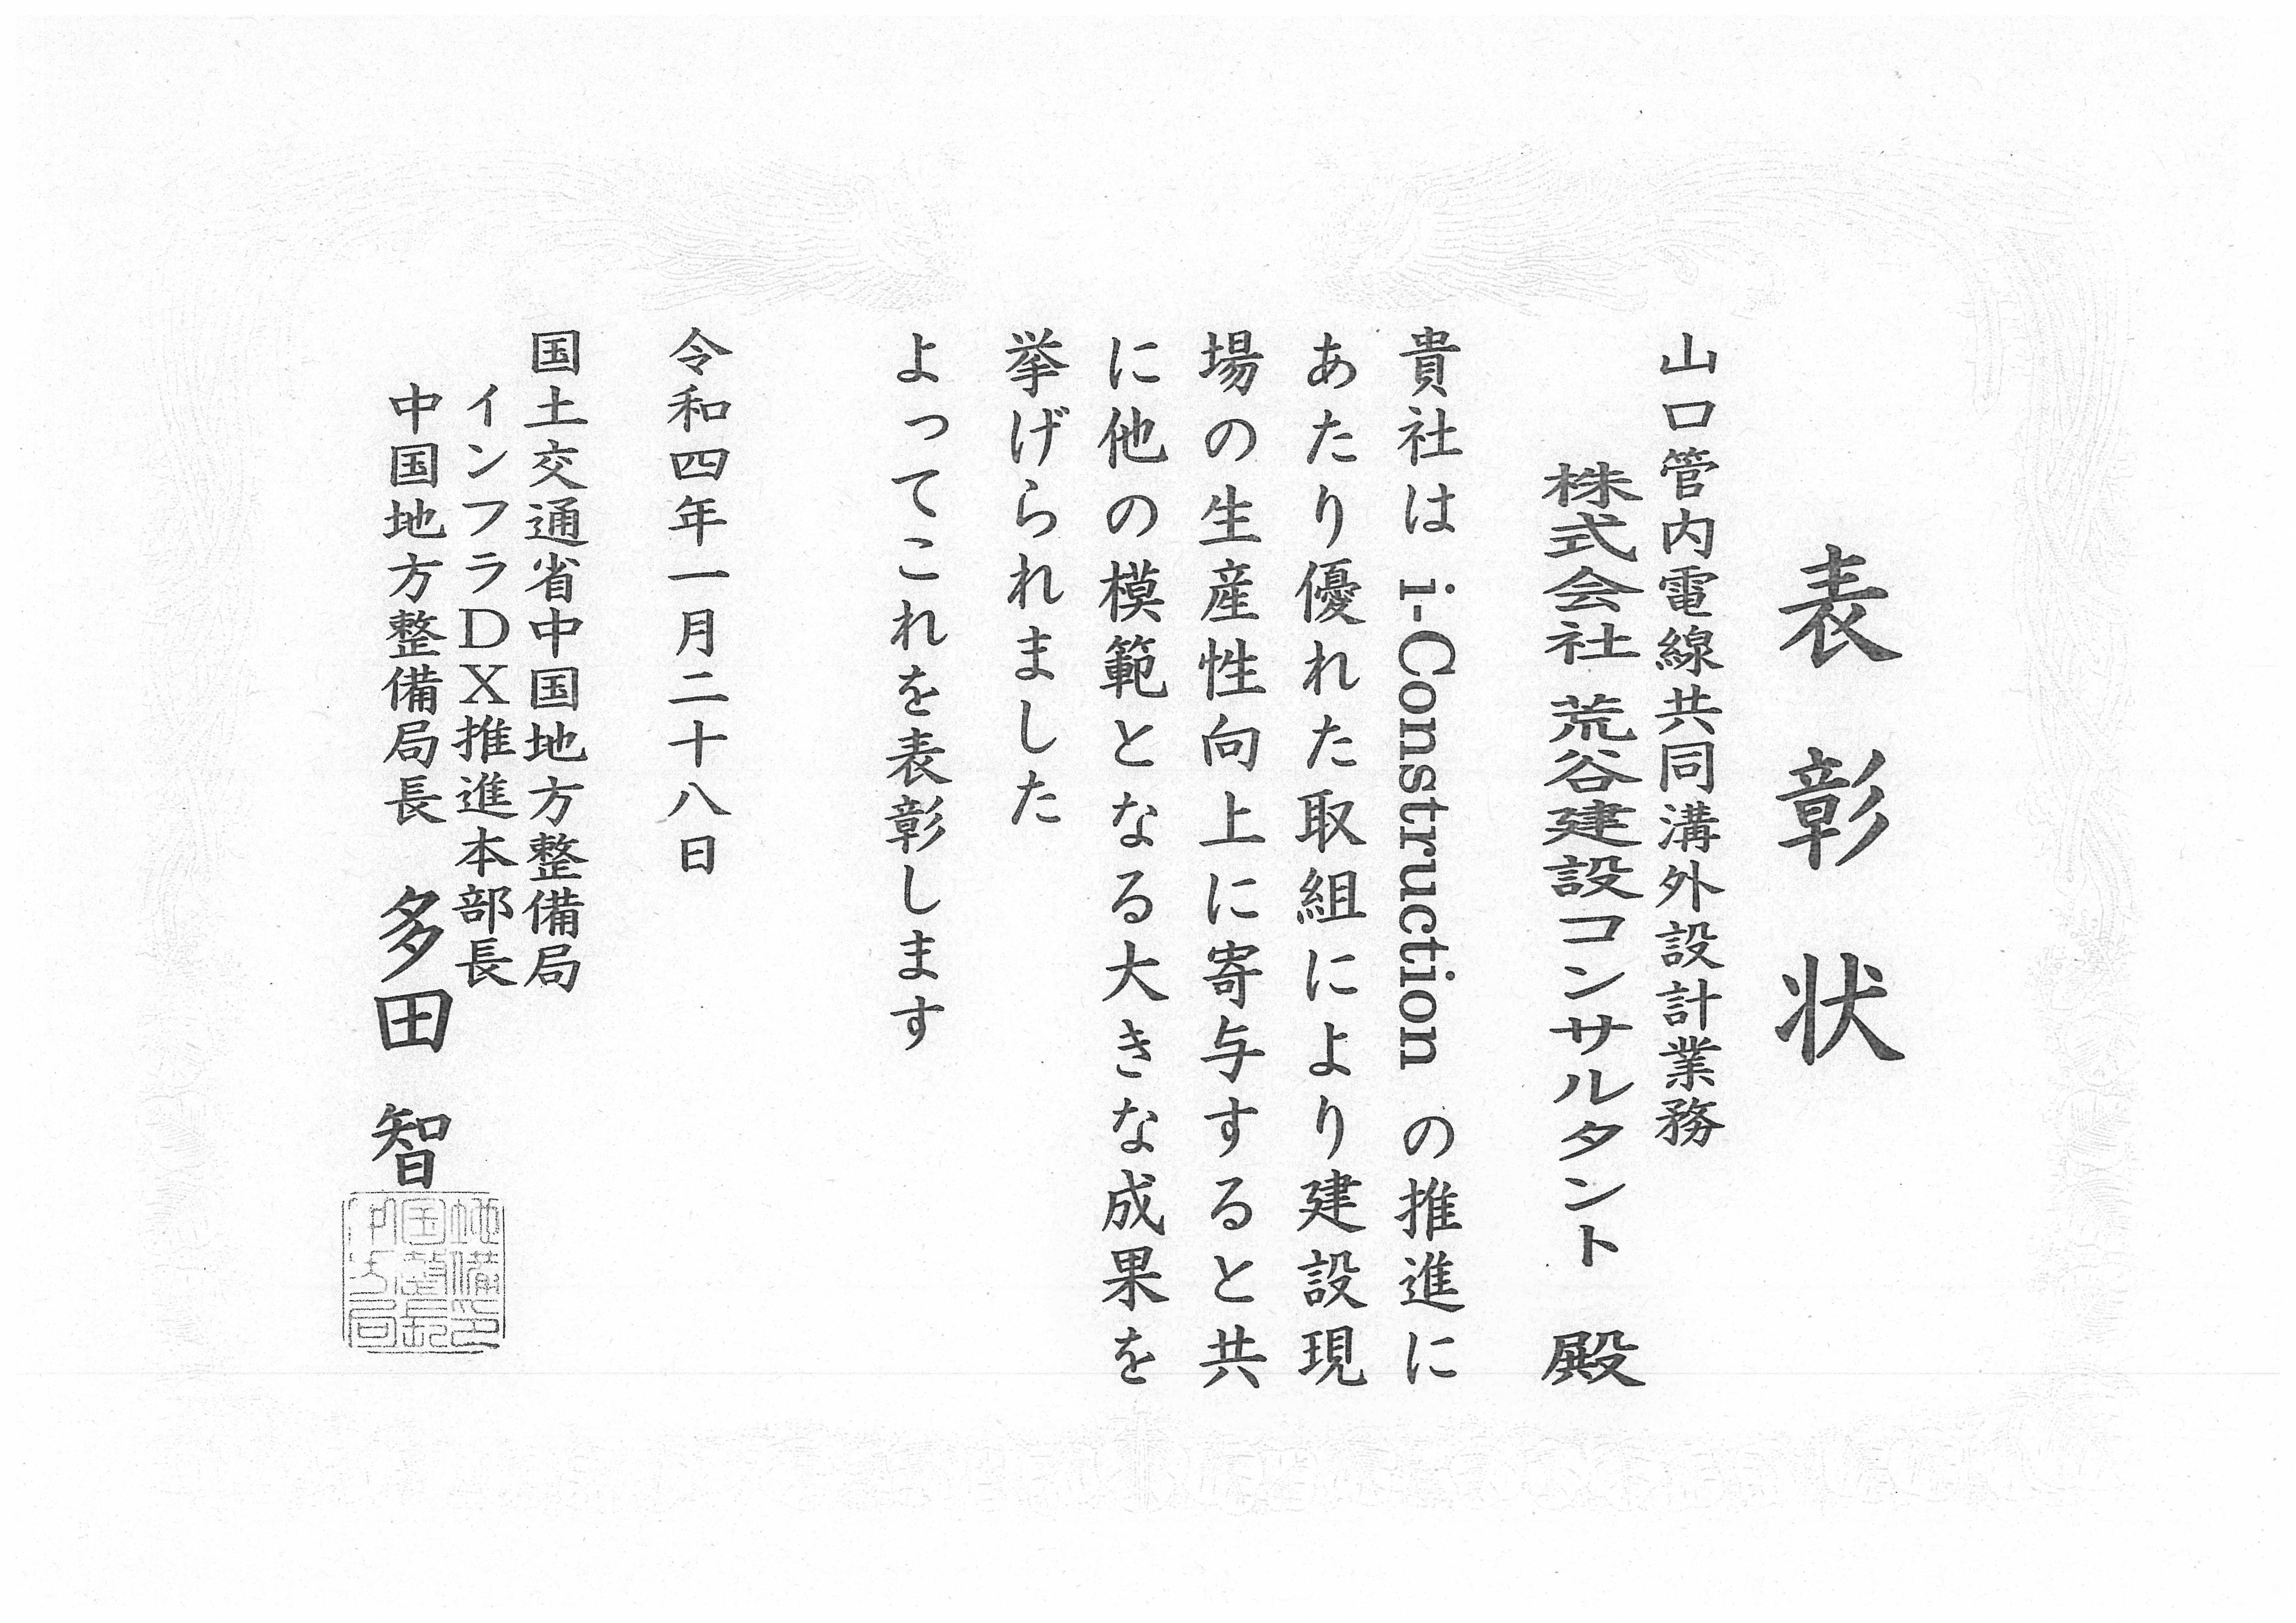 表彰状
山口管内電線共同溝外設計業務
株式会社 荒谷建設コンサルタント 殿
貴社は i-Construction の推進に
あたり優れた取組により建設現
場の生産性向上に寄与すると共
に他の模範となる大きな成果を
挙げられました
よってこれを表彰します
令和四年一月二十八日
国土交通省中国地方整備局
インフラDX推進本部長
中国地方整備局長 多田 智